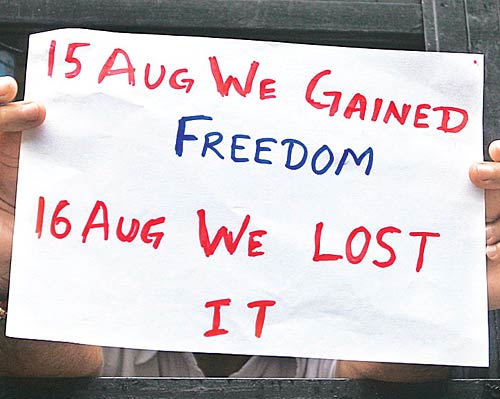 15 AUG WE GAINED
FREEDOM
16 AUG WE LOST
IT